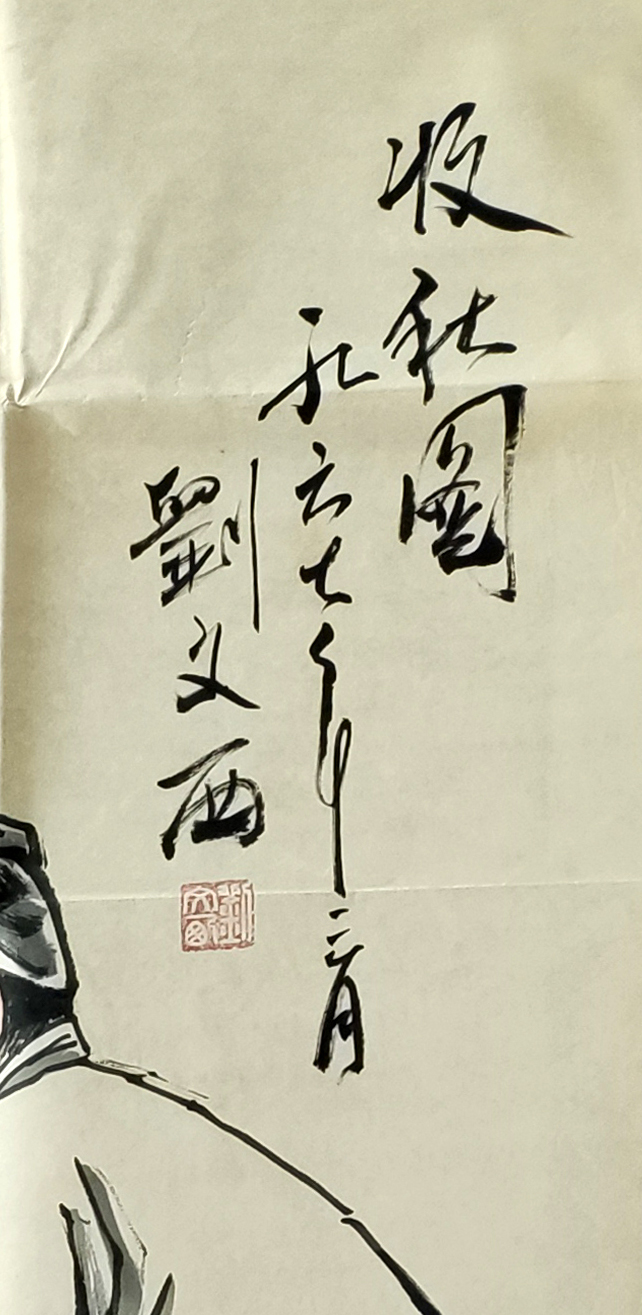 收秋圖
一九六七年三月
劉文西
劉文西